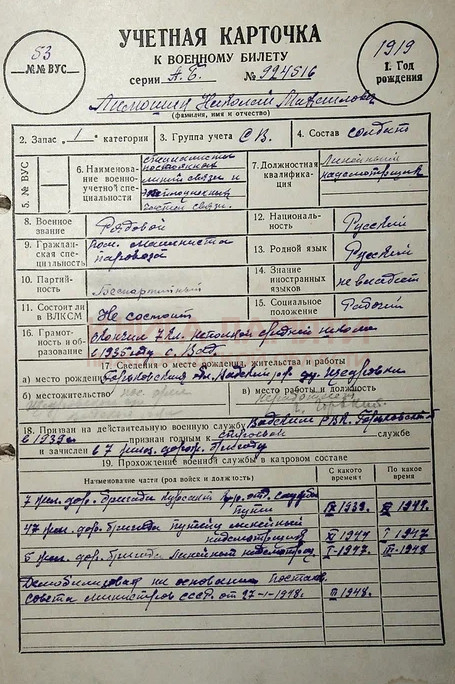 УЧЕТНАЯ КАРТОЧКА
К ВОЕННОМУ БИЛЕТУ
серии А.Б. № 924516
53
№№ ВУС
1919
1. Год рождения
Николай
(фамилия, имя и отчество)
2. Запас 1 категории
3. Группа учета С.В.
4. Состав солдат
5. № ВУС
6. Наименование военно-учетной специальности
специалисты постоянных линий связи и
7. Должностная квалификация
Линейный надсмотрщик
8. Военное звание
Рядовой
12. Национальность
Русский
9. Гражданская специальность
пом. машиниста паровоза
13. Родной язык
Русский
10. Партийность
Беспартийный
14. Знание иностранных языков
не владеет
11. Состоит ли в ВЛКСМ
Не состоит
15. Социальное положение
Рабочий
16. Грамотность и образование
окончил 7 кл. неполной средней школы
в 1935 году с. Вад
17. Сведения о месте рождения, жительства и работы
а) место рождения Горьковская обл. Вадский р-н
б) местожительство
в) место работы и должность
18. Призван на действительную военную службу Вадским РВК Горьковской
в 1939 г. признан годным к строевой службе
и зачислен в 7 бригаду
19. Прохождение военной службы в кадровом составе
Наименование части (род войск и должность)
С какого времени
По какое время
7 жел. дор. бригада курсант
пути IX 1939. XI 1944.
47 жел. дор. бригада линейный
надсмотрщик XI 1944 I 1947
5 жел. дор. бригада линейный надсмотрщ. I-1947. III-1948
Демобилизован на основании постан.
совета министров СССР. от 27-1-1948. III 1948.